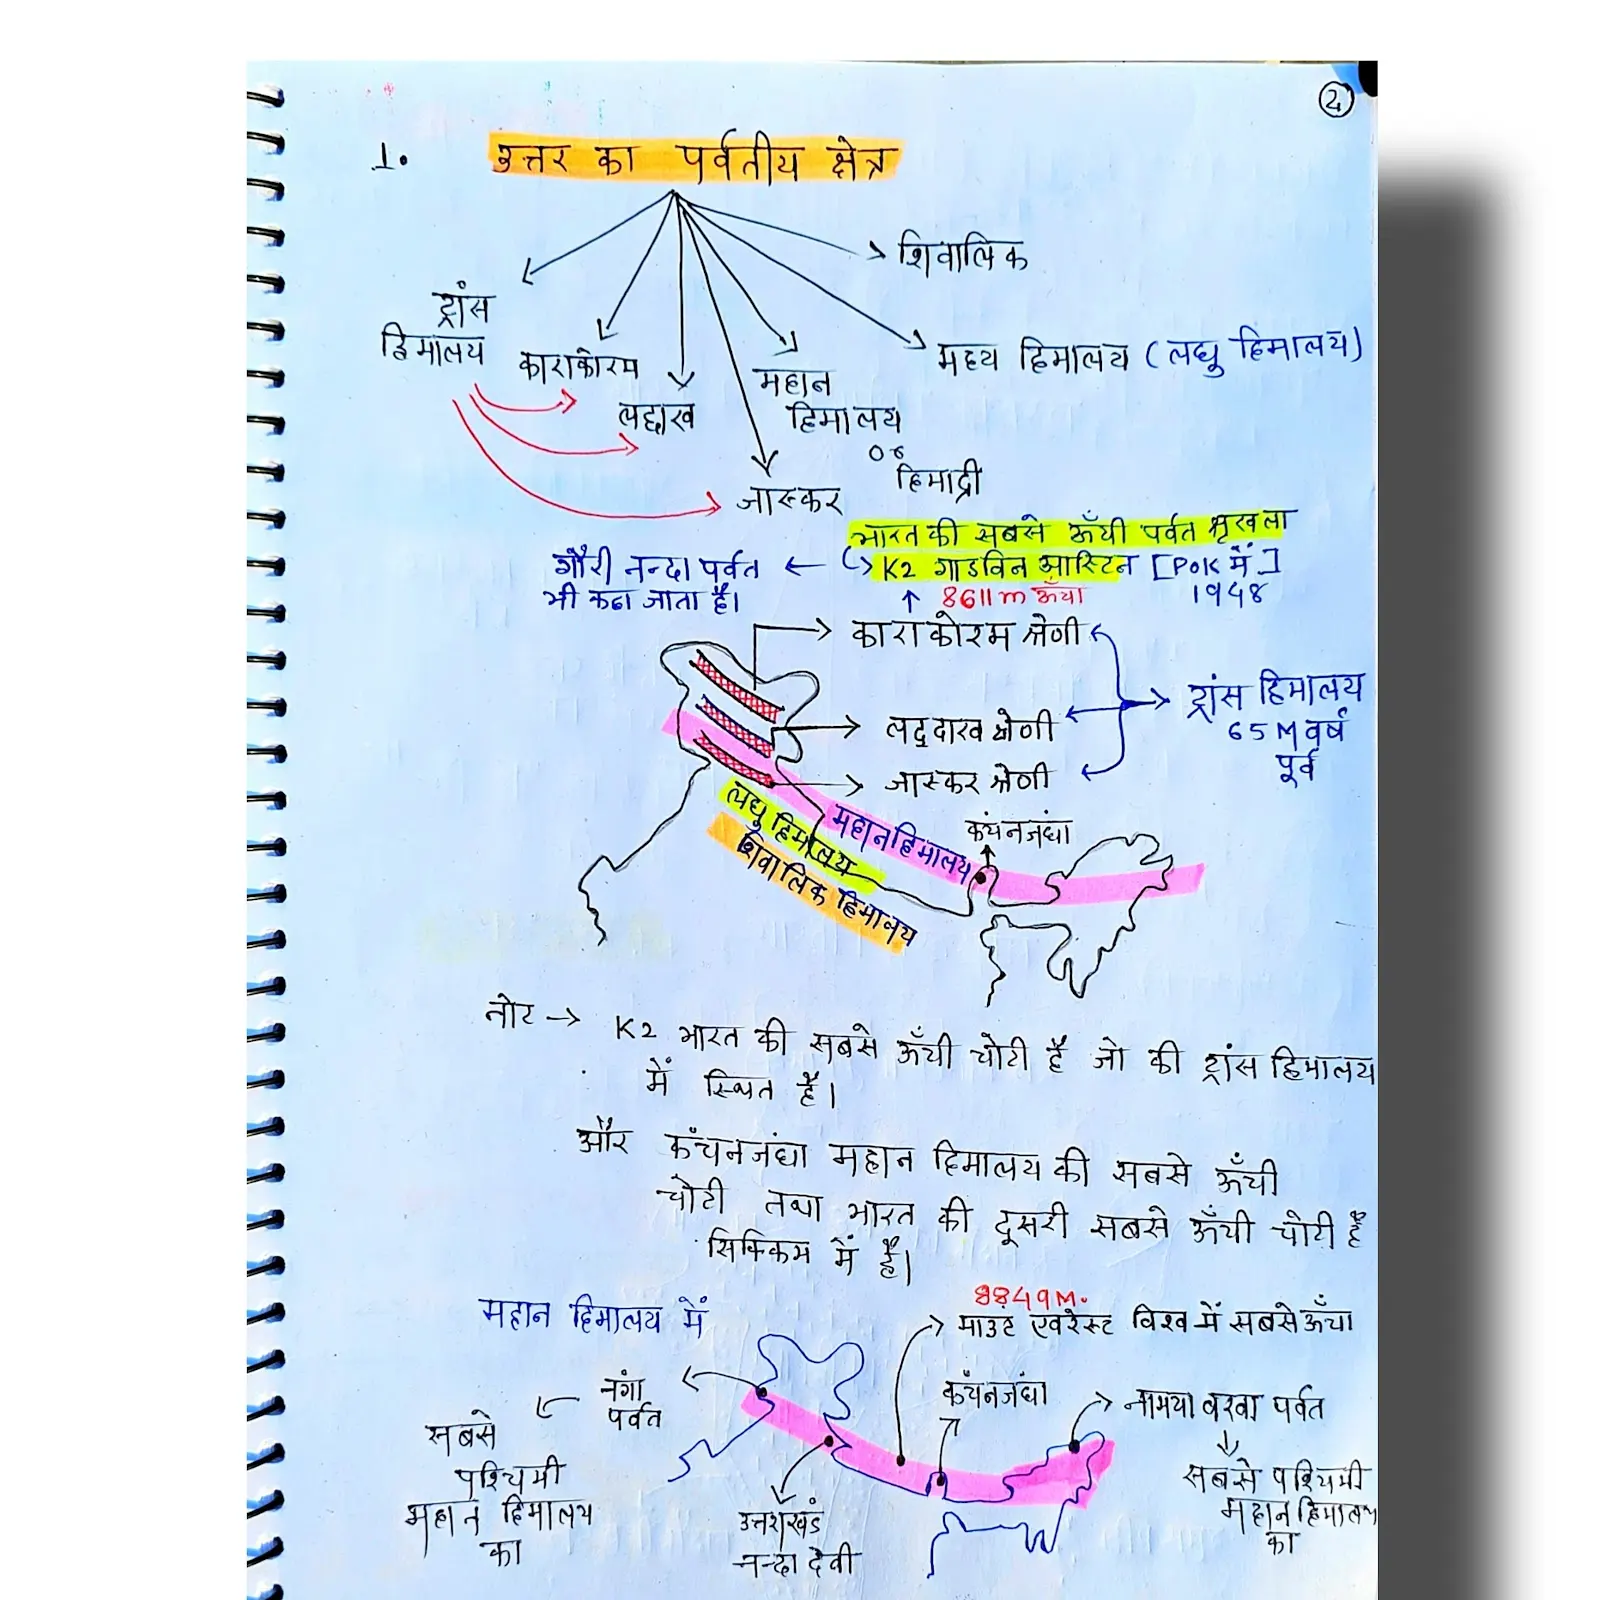 2
1. उत्तर का पर्वतीय क्षेत्र
शिवालिक
ट्रांस
हिमालय
काराकोरम
लद्दाख
जास्कर
महान
हिमालय
or
हिमाद्री
मध्य हिमालय (लघु हिमालय)
भारत की सबसे ऊँची पर्वत श्रृखला
K2 गाडविन आस्टिन [Pok में]
1948
8611m ऊँचा
गौरी नन्दा पर्वत
भी कहा जाता है।
काराकोरम श्रेणी
लद्दाख श्रेणी
जास्कर श्रेणी
ट्रांस हिमालय
65 M वर्ष
पूर्व
महान हिमालय
कंचनजंघा
लघु हिमालय
शिवालिक हिमालय
नोट → K2 भारत की सबसे ऊँची चोटी है जो की ट्रांस हिमालय
में स्थित है।
और कँचनजंघा महान हिमालय की सबसे ऊँची
चोटी तथा भारत की दूसरी सबसे ऊँची चोटी है
सिक्किम में है।
महान हिमालय में
8849M.
माउंट एवरेस्ट विश्व में सबसे ऊँचा
नंगा
पर्वत
सबसे
पश्चिमी
महान हिमालय
का
उत्तराखंड
नन्दा देवी
कँचनजंघा
नामचा बरवा पर्वत
सबसे पश्चिमी
महान हिमालय
का